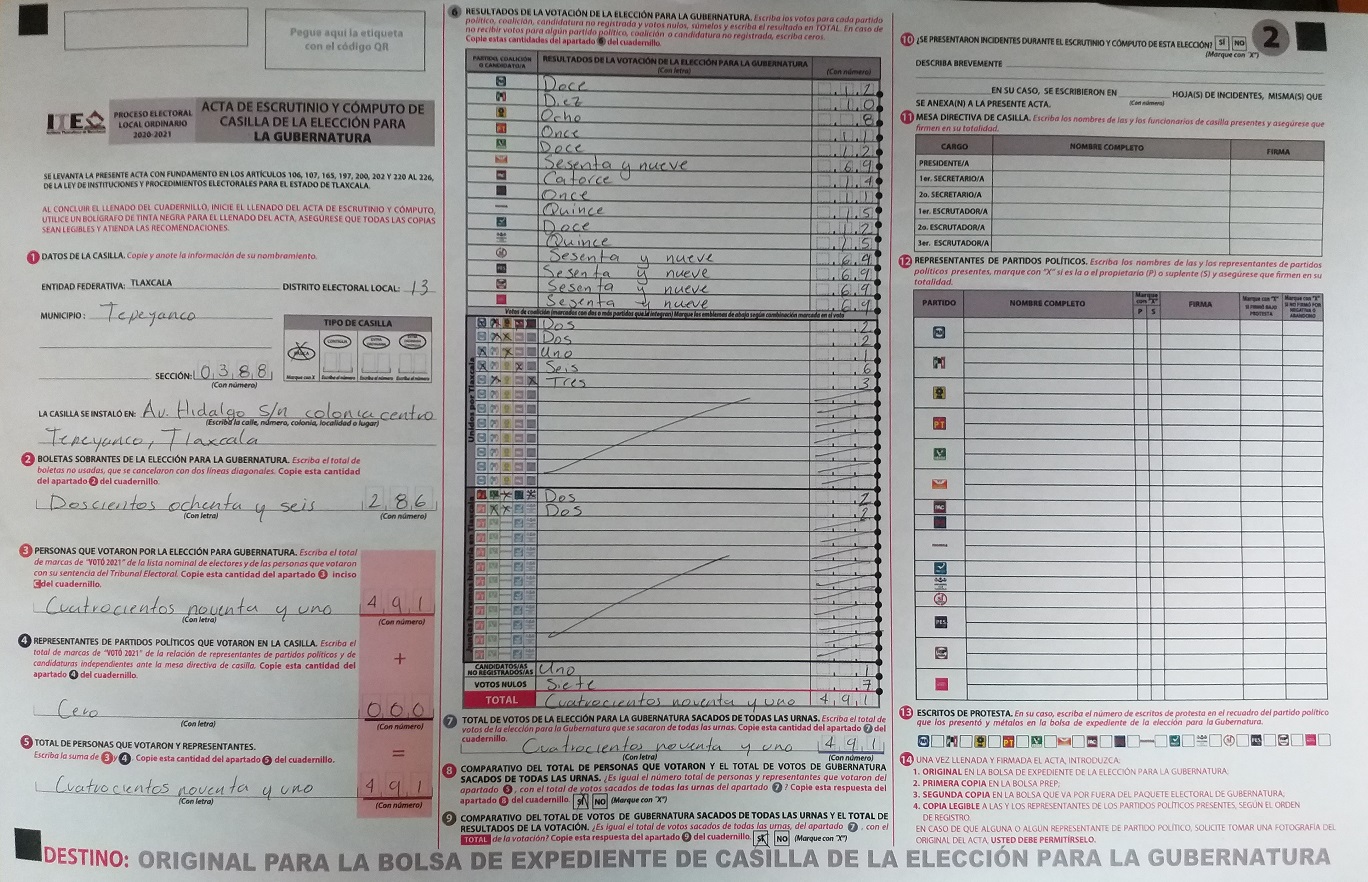 Pegue aquí la etiqueta
con el código QR
ITE
PROCESO ELECTORAL
LOCAL ORDINARIO
2020-2021
ACTA DE ESCRUTINIO Y CÓMPUTO DE
CASILLA DE LA ELECCIÓN PARA
LA GUBERNATURA
SE LEVANTA LA PRESENTE ACTA CON FUNDAMENTO EN LOS ARTÍCULOS 106, 107, 165, 197, 200, 202 Y 220 AL 226,
DE LA LEY DE INSTITUCIONES Y PROCEDIMIENTOS ELECTORALES PARA EL ESTADO DE TLAXCALA.
AL CONCLUIR EL LLENADO DEL CUADERNILLO, INICIE EL LLENADO DEL ACTA DE ESCRUTINIO Y CÓMPUTO,
UTILICE UN BOLÍGRAFO DE TINTA NEGRA PARA EL LLENADO DEL ACTA, ASEGÚRESE QUE TODAS LAS COPIAS
SEAN LEGIBLES Y ATIENDA LAS RECOMENDACIONES.
1 DATOS DE LA CASILLA. Copie y anote la información de su nombramiento.
ENTIDAD FEDERATIVA: TLAXCALA DISTRITO ELECTORAL LOCAL: 13
MUNICIPIO: Tepeyanco
TIPO DE CASILLA
Marque con X
SECCIÓN: 0388
(Con número)
LA CASILLA SE INSTALÓ EN: Av. Hidalgo S/n colonia centro
(Escriba la calle, número, colonia, localidad o lugar)
Tepeyanco, Tlaxcala
2 BOLETAS SOBRANTES DE LA ELECCIÓN PARA LA GUBERNATURA. Escriba el total de
boletas no usadas, que se cancelaron con dos líneas diagonales. Copie esta cantidad
del apartado 2 del cuadernillo.
Doscientos ochenta y seis 286
(Con letra) (Con número)
3 PERSONAS QUE VOTARON POR LA ELECCIÓN PARA GUBERNATURA. Escriba el total
de marcas de "VOTÓ 2021" de la lista nominal de electores y de las personas que votaron
con su sentencia del Tribunal Electoral. Copie esta cantidad del apartado 3 inciso
C del cuadernillo.
Cuatrocientos noventa y uno 491
(Con letra) (Con número)
4 REPRESENTANTES DE PARTIDOS POLÍTICOS QUE VOTARON EN LA CASILLA. Escriba el
total de marcas de "VOTÓ 2021" de la relación de representantes de partidos políticos y de
candidaturas independientes ante la mesa directiva de casilla. Copie esta cantidad del
apartado 4 del cuadernillo.
+
Cero 000
(Con letra) (Con número)
5 TOTAL DE PERSONAS QUE VOTARON Y REPRESENTANTES.
Escriba la suma de 3 y 4. Copie esta cantidad del apartado 5 del cuadernillo.
=
Cuatrocientos noventa y uno 491
(Con letra) (Con número)
6 RESULTADOS DE LA VOTACIÓN DE LA ELECCIÓN PARA LA GUBERNATURA. Escriba los votos para cada partido
político, coalición, candidatura no registrada y votos nulos, súmelos y escriba el resultado en TOTAL. En caso de
no recibir votos para algún partido político, coalición o candidatura no registrada, escriba ceros.
Copie estas cantidades del apartado 6 del cuadernillo.
PARTIDO, COALICIÓN O CANDIDATO/A
RESULTADOS DE LA VOTACIÓN DE LA ELECCIÓN PARA LA GUBERNATURA
(Con letra) (Con número)
Doce 12
Diez 10
Ocho 8
Once 11
Doce 12
Sesenta y nueve 69
Catorce 14
Once 11
Quince 15
Doce 12
Quince 15
Sesenta y nueve 69
Sesenta y nueve 69
Sesenta y nueve 69
Sesenta y nueve 69
Votos de coalición (marcados con dos o más partidos que la integran) Marque los emblemas de abajo según combinación marcada en el voto
Unidos por Tlaxcala
Dos 2
Dos 2
Uno 1
Seis 6
Tres 3
Juntos haremos historia en Tlaxcala
Dos 2
Dos 2
CANDIDATOS/AS NO REGISTRADOS/AS Uno 1
VOTOS NULOS Siete 7
TOTAL Cuatrocientos noventa y uno 491
7 TOTAL DE VOTOS DE LA ELECCIÓN PARA LA GUBERNATURA SACADOS DE TODAS LAS URNAS. Escriba el total de
votos de la elección para la Gubernatura que se sacaron de todas las urnas. Copie esta cantidad del apartado 7 del
cuadernillo.
Cuatrocientos noventa y uno 491
(Con letra) (Con número)
8 COMPARATIVO DEL TOTAL DE PERSONAS QUE VOTARON Y EL TOTAL DE VOTOS DE GUBERNATURA
SACADOS DE TODAS LAS URNAS. ¿Es igual el número total de personas y representantes que votaron del
apartado 5, con el total de votos sacados de todas las urnas del apartado 7? Copie esta respuesta del
apartado 8 del cuadernillo. SÍ NO (Marque con "X")
9 COMPARATIVO DEL TOTAL DE VOTOS DE GUBERNATURA SACADOS DE TODAS LAS URNAS Y EL TOTAL DE
RESULTADOS DE LA VOTACIÓN. ¿Es igual el total de votos sacados de todas las urnas, del apartado 7, con el
TOTAL de la votación? Copie esta respuesta del apartado 9 del cuadernillo. SÍ NO (Marque con "X")
10 ¿SE PRESENTARON INCIDENTES DURANTE EL ESCRUTINIO Y CÓMPUTO DE ESTA ELECCIÓN? SÍ NO
(Marque con "X")
2
DESCRIBA BREVEMENTE
EN SU CASO, SE ESCRIBIERON EN HOJA(S) DE INCIDENTES, MISMA(S) QUE
SE ANEXA(N) A LA PRESENTE ACTA. (Con número)
11 MESA DIRECTIVA DE CASILLA. Escriba los nombres de las y los funcionarios de casilla presentes y asegúrese que
firmen en su totalidad.
CARGO NOMBRE COMPLETO FIRMA
PRESIDENTE/A
1er. SECRETARIO/A
2o. SECRETARIO/A
1er. ESCRUTADOR/A
2o. ESCRUTADOR/A
3er. ESCRUTADOR/A
12 REPRESENTANTES DE PARTIDOS POLÍTICOS. Escriba los nombres de las y los representantes de partidos
políticos presentes, marque con "X" si es la o el propietario (P) o suplente (S) y asegúrese que firmen en su
totalidad.
PARTIDO NOMBRE COMPLETO Marque con "X" P S FIRMA Marque con "X" SI FIRMÓ BAJO PROTESTA Marque con "X" SI NO FIRMÓ POR NEGATIVA O ABANDONO
PT
PAC
PES
13 ESCRITOS DE PROTESTA. En su caso, escriba el número de escritos de protesta en el recuadro del partido político
que los presentó y métalos en la bolsa de expediente de la elección para la Gubernatura.
14 UNA VEZ LLENADA Y FIRMADA EL ACTA, INTRODUZCA:
1. ORIGINAL EN LA BOLSA DE EXPEDIENTE DE LA ELECCIÓN PARA LA GUBERNATURA;
2. PRIMERA COPIA EN LA BOLSA PREP;
3. SEGUNDA COPIA EN LA BOLSA QUE VA POR FUERA DEL PAQUETE ELECTORAL DE GUBERNATURA;
4. COPIA LEGIBLE A LAS Y LOS REPRESENTANTES DE LOS PARTIDOS POLÍTICOS PRESENTES, SEGÚN EL ORDEN
DE REGISTRO.
EN CASO DE QUE ALGUNA O ALGÚN REPRESENTANTE DE PARTIDO POLÍTICO, SOLICITE TOMAR UNA FOTOGRAFÍA DEL
ORIGINAL DEL ACTA, USTED DEBE PERMITÍRSELO.
DESTINO: ORIGINAL PARA LA BOLSA DE EXPEDIENTE DE CASILLA DE LA ELECCIÓN PARA LA GUBERNATURA